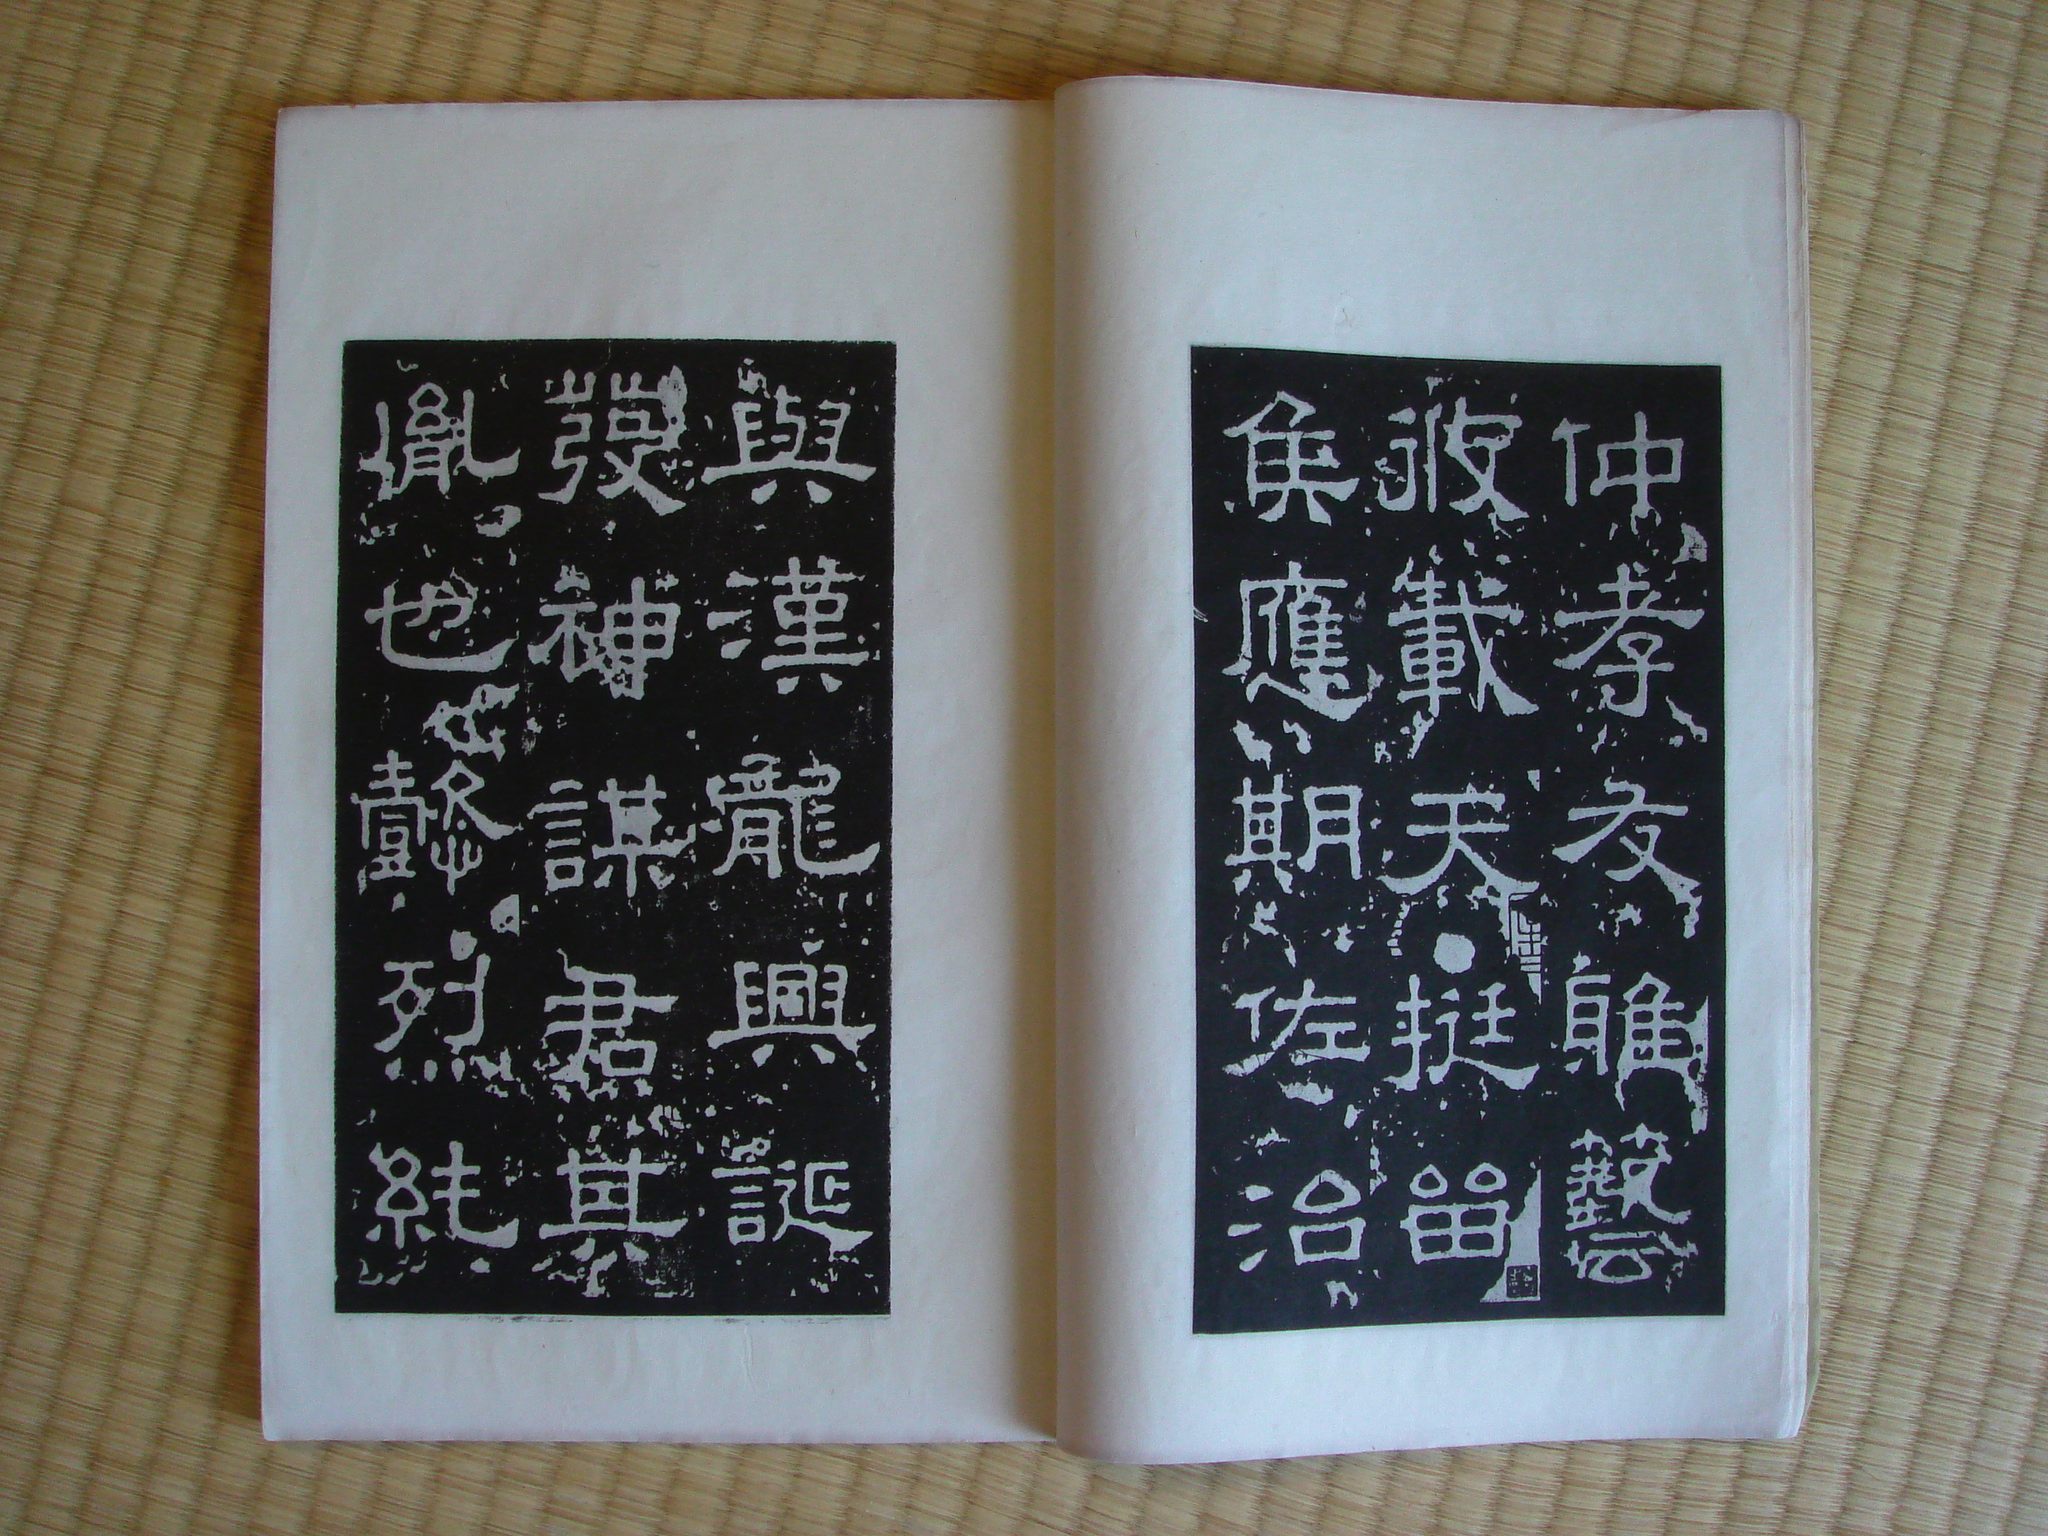 仲孝友雅藝
攸載天挺留
矦應期佐治
與漢龍興誕
發神謀君其
胤也懿烈純